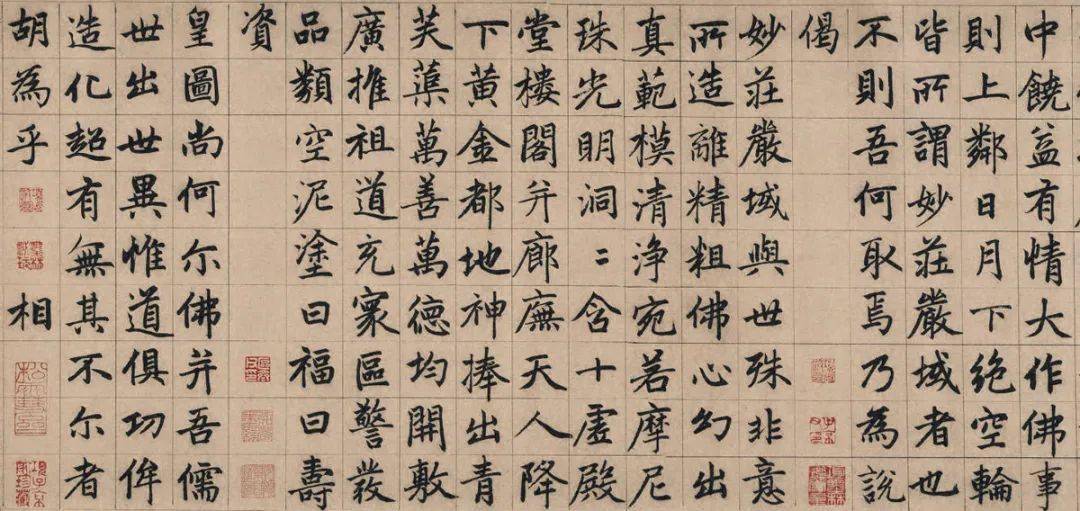 中饒益有情大作佛事
則上鄰日月下絶空輪
皆所謂妙莊嚴域者也
不則吾何取焉乃為說
偈
妙莊嚴域與世殊非意
所造離精粗佛心幻出
真範模清浄宛若摩尼
珠光明洞〻含十虛殿
堂樓閣并廊廡天人降
下黄金都地神捧出青
芙蕖萬善萬德均開敷
廣推祖道充寰區警發
品類空泥塗曰福曰壽
資
皇圖尚何尔佛并吾儒
世出世異惟道俱功侔
造化超有無其不尔者
胡為乎 相